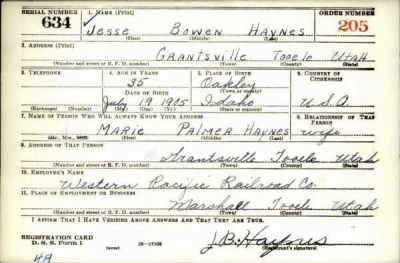 SERIAL NUMBER 1. NAME (Print) ORDER NUMBER
634 Jesse Bowen Haynes 205
(First) (Middle) (Last)
2. ADDRESS (Print)
Grantsville Tooele Utah
(Number and street or R. F. D. number) (Town) (County) (State)
3. TELEPHONE 4. AGE IN YEARS 5. PLACE OF BIRTH 6. COUNTRY OF CITIZENSHIP
35 Oakley
DATE OF BIRTH (Town or county)
July 19 1905 Idaho U.S.A.
(Exchange) (Number) (Mo.) (Day) (Yr.) (State or country)
7. NAME OF PERSON WHO WILL ALWAYS KNOW YOUR ADDRESS 8. RELATIONSHIP OF THAT PERSON
MARIE PALMER HAYNES wife
(Mr., Mrs., Miss) (First) (Middle) (Last)
9. ADDRESS OF THAT PERSON
Grantsville Tooele Utah
(Number and street or R. F. D. number) (Town) (County) (State)
10. EMPLOYER'S NAME
Western Pacific Railroad Co.
11. PLACE OF EMPLOYMENT OR BUSINESS
Marshall Tooele Utah
(Number and street or R. F. D. number) (Town) (County) (State)
I AFFIRM THAT I HAVE VERIFIED ABOVE ANSWERS AND THAT THEY ARE TRUE.
REGISTRATION CARD
D. S. S. Form 1 16-17105 J.B. Haynes
(Registrant's signature)